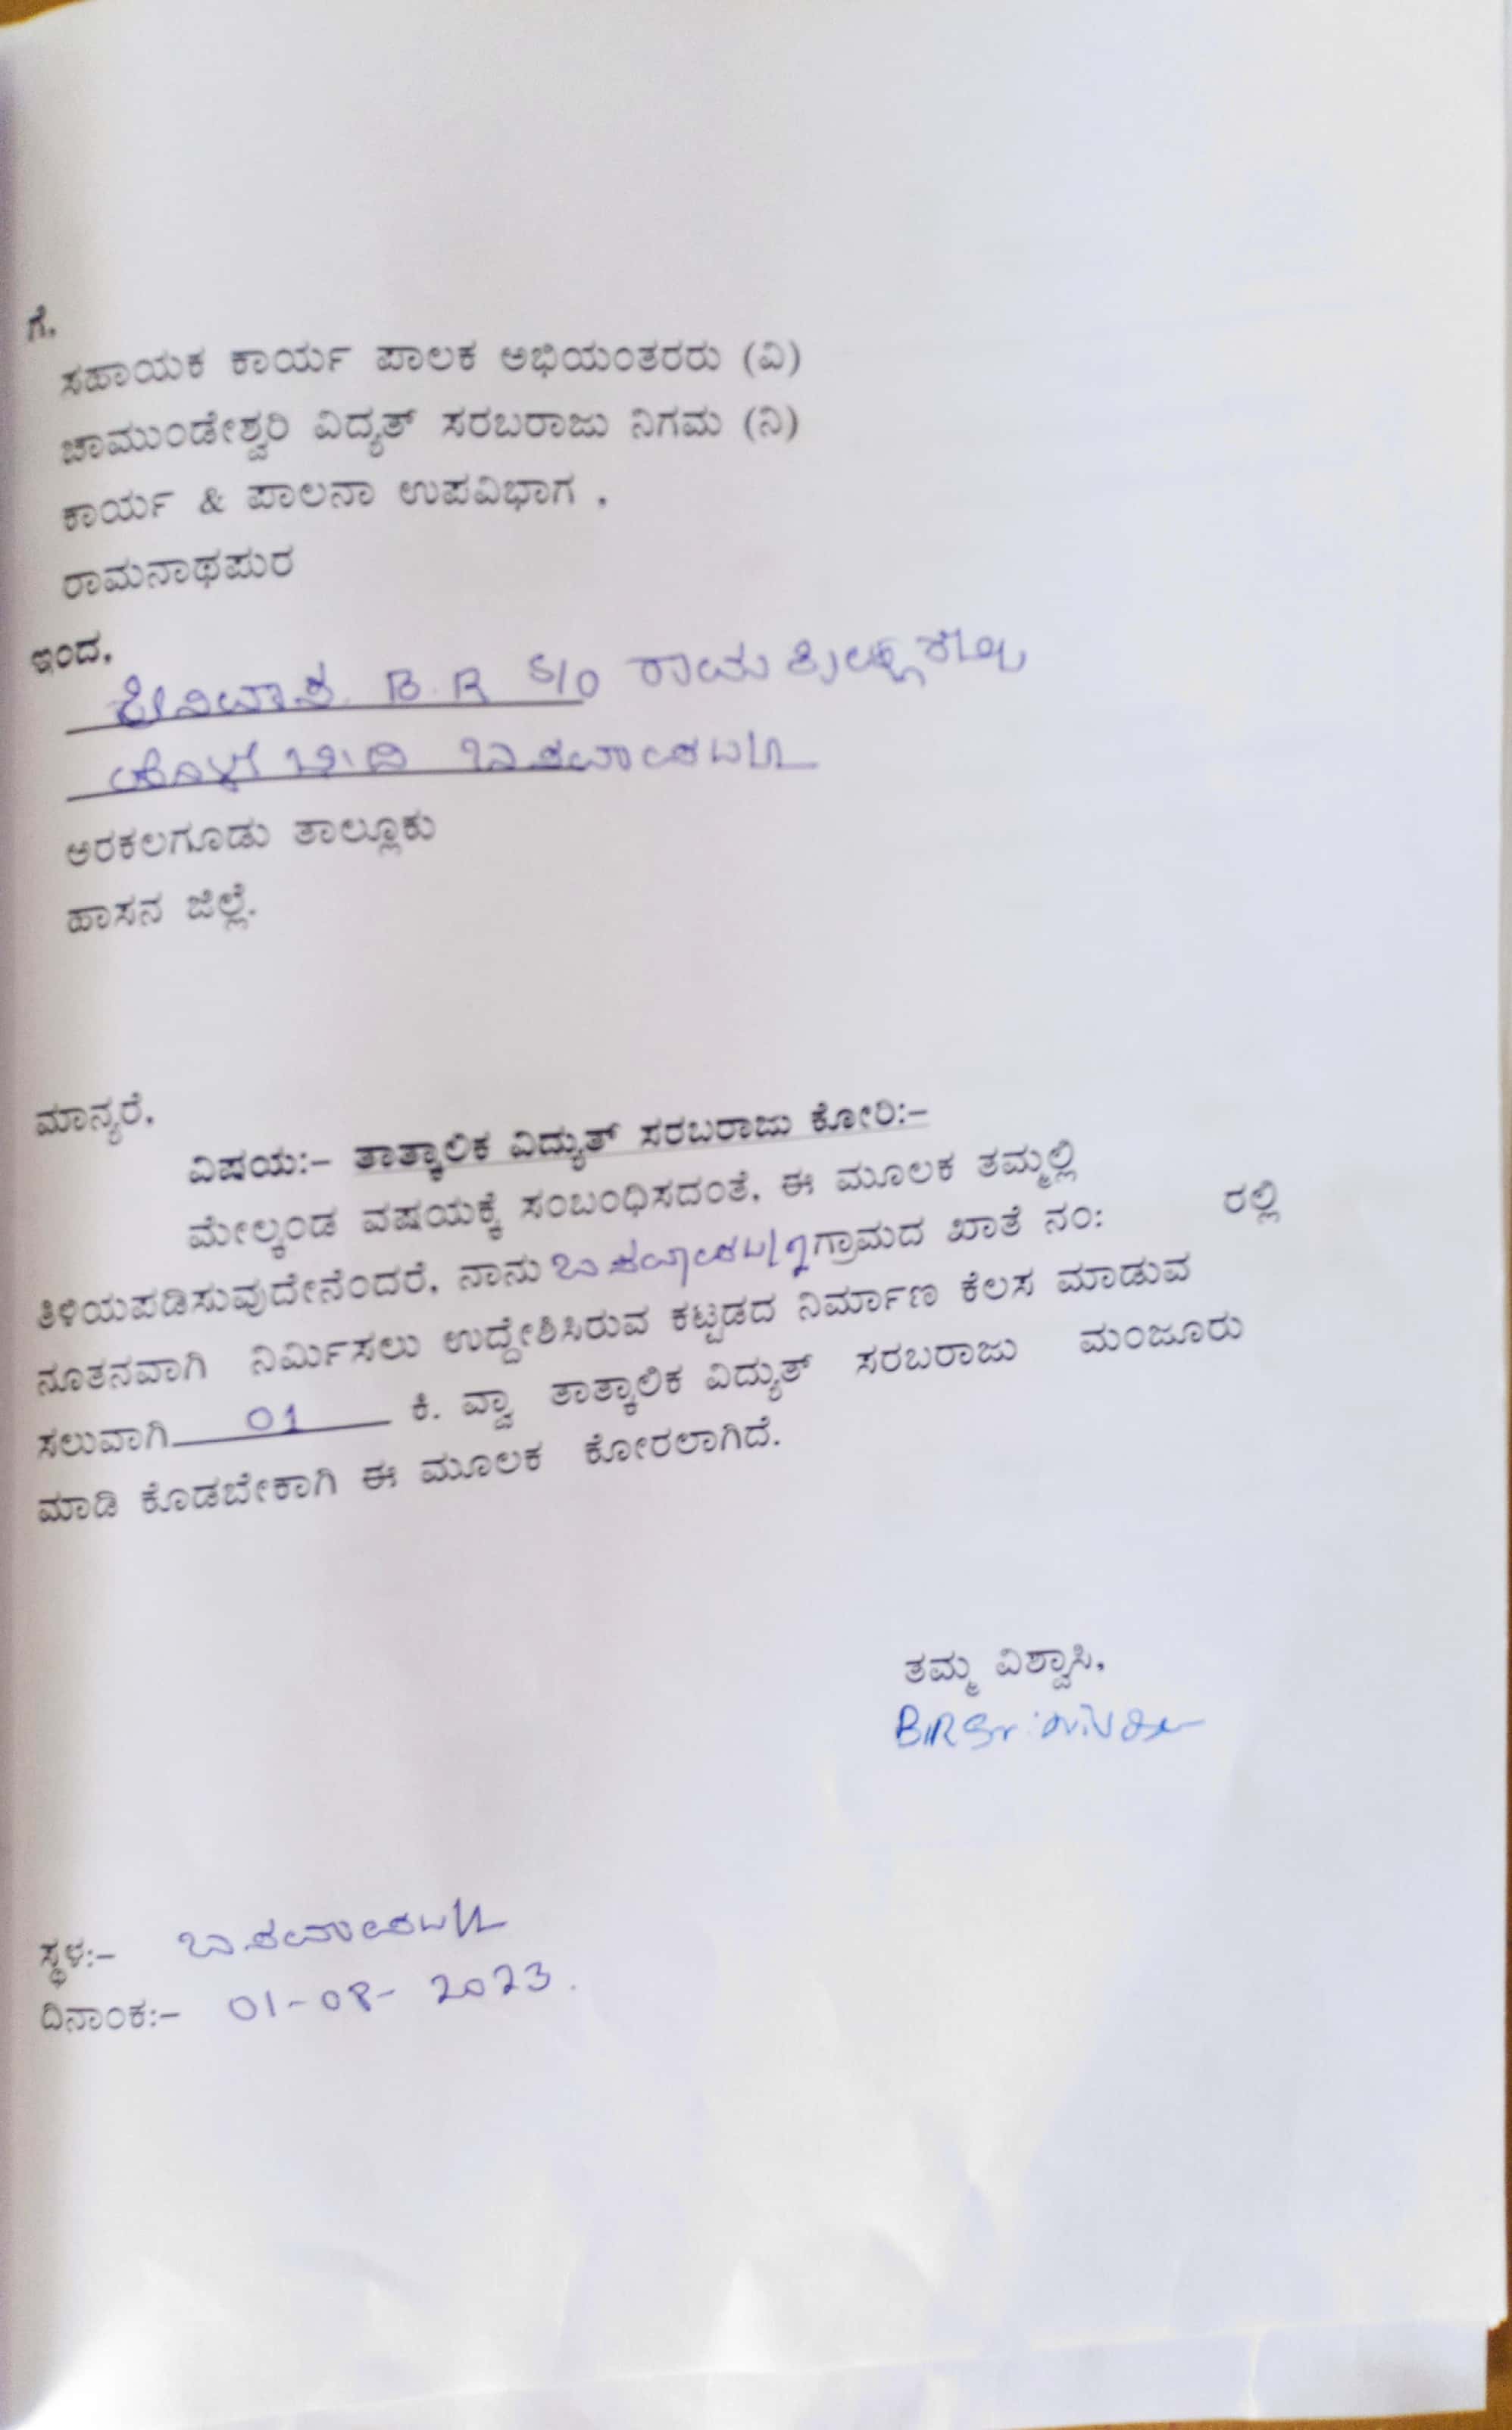 ಗೆ,
ಸಹಾಯಕ ಕಾರ್ಯ ಪಾಲಕ ಅಭಿಯಂತರರು (ವಿ)
ಚಾಮುಂಡೇಶ್ವರಿ ವಿದ್ಯತ್ ಸರಬರಾಜು ನಿಗಮ (ನಿ)
ಕಾರ್ಯ & ಪಾಲನಾ ಉಪವಿಭಾಗ ,
ರಾಮನಾಥಪುರ
ಇಂದ,
ಶ್ರೀನಿವಾಸ. B.R S/o
ಬೀದಿ ಬಸವಾಪಟ್ಟಣ
ಅರಕಲಗೂಡು ತಾಲ್ಲೂಕು
ಹಾಸನ ಜಿಲ್ಲೆ.
ಮಾನ್ಯರೆ,
ವಿಷಯ:– ತಾತ್ಕಾಲಿಕ ವಿದ್ಯುತ್ ಸರಬರಾಜು ಕೋರಿ:–
ಮೇಲ್ಕಂಡ ವಷಯಕ್ಕೆ ಸಂಬಂಧಿಸದಂತೆ, ಈ ಮೂಲಕ ತಮ್ಮಲ್ಲಿ
ತಿಳಿಯಪಡಿಸುವುದೇನೆಂದರೆ, ನಾನು ಬಸವಾಪಟ್ಟಣ ಗ್ರಾಮದ ಖಾತೆ ನಂ: ರಲ್ಲಿ
ನೂತನವಾಗಿ ನಿರ್ಮಿಸಲು ಉದ್ದೇಶಿಸಿರುವ ಕಟ್ಟಡದ ನಿರ್ಮಾಣ ಕೆಲಸ ಮಾಡುವ
ಸಲುವಾಗಿ 01 ಕಿ. ವ್ಯಾ ತಾತ್ಕಾಲಿಕ ವಿದ್ಯುತ್ ಸರಬರಾಜು ಮಂಜೂರು
ಮಾಡಿ ಕೊಡಬೇಕಾಗಿ ಈ ಮೂಲಕ ಕೋರಲಾಗಿದೆ.
ತಮ್ಮ ವಿಶ್ವಾಸಿ,
ಸ್ಥಳ:– ಬಸವಾಪಟ್ಟಣ
ದಿನಾಂಕ:– 01-08-2023.